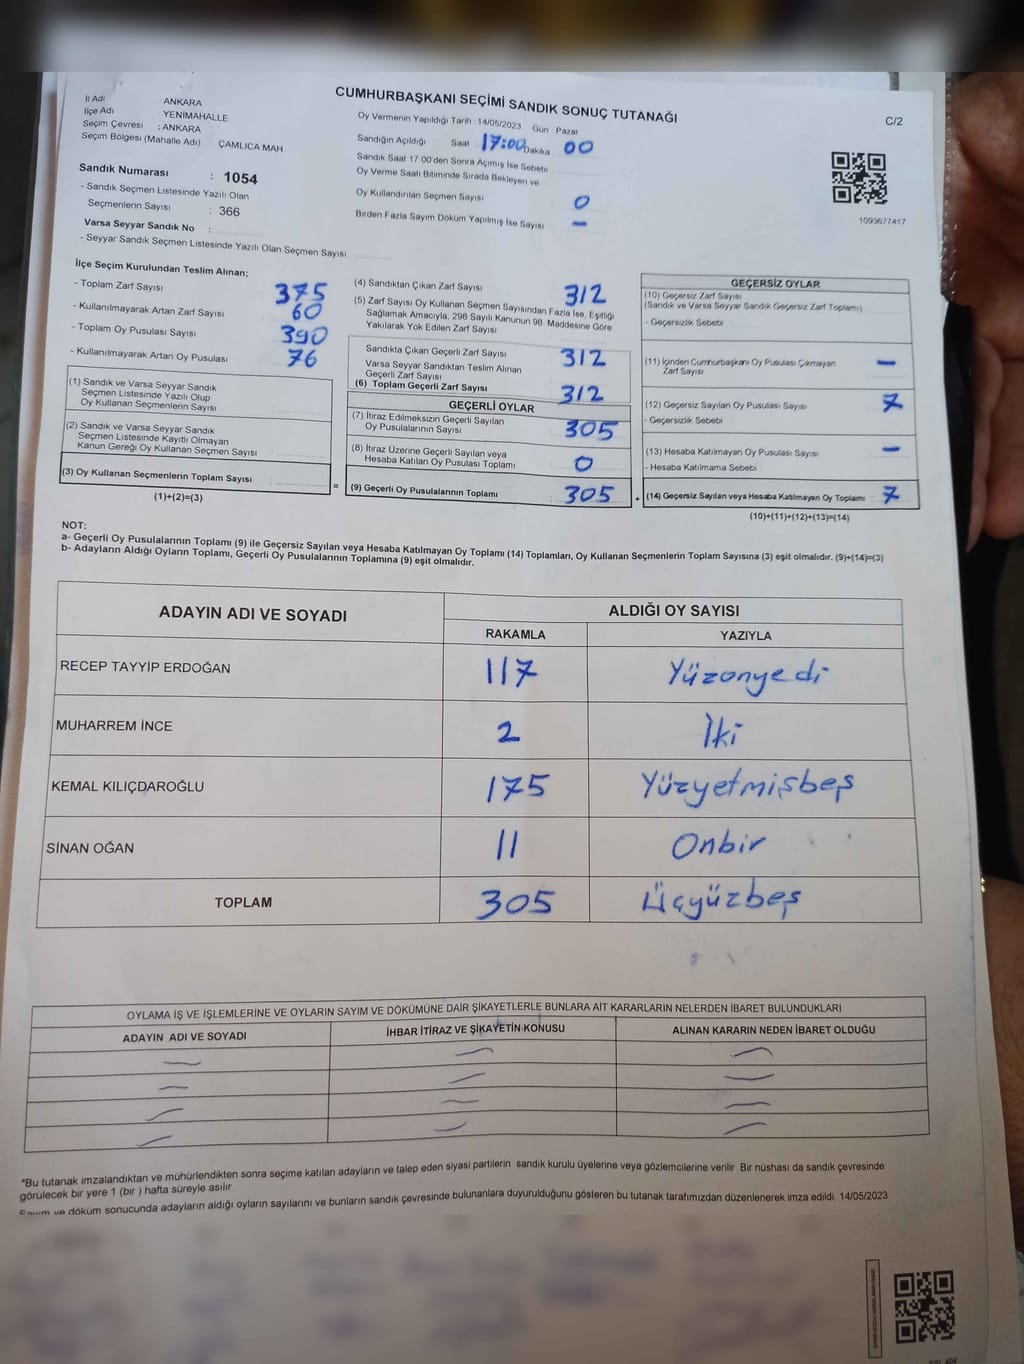 CUMHURBAŞKANI SEÇİMİ SANDIK SONUÇ TUTANAĞI
C/2
İl Adı ANKARA
İlçe Adı YENİMAHALLE
Seçim Çevresi : ANKARA
Seçim Bölgesi (Mahalle Adı) ÇAMLICA MAH
Sandık Numarası : 1054
- Sandık Seçmen Listesinde Yazılı Olan
Seçmenlerin Sayısı : 366
Varsa Seyyar Sandık No :
- Seyyar Sandık Seçmen Listesinde Yazılı Olan Seçmen Sayısı
Oy Vermenin Yapıldığı Tarih 14/05/2023 Gün Pazar
Sandığın Açıldığı Saat 17:00 Dakika 00
Sandık Saat 17 00'den Sonra Açımış İse Sebebi
Oy Verme Saati Bitiminde Sırada Bekleyen ve
Oy Kullandırılan Seçmen Sayısı 0
Birden Fazla Sayım Döküm Yapılmış İse Sayısı –
1093677417
İlçe Seçim Kurulundan Teslim Alınan;
- Toplam Zarf Sayısı 375
- Kullanılmayarak Artan Zarf Sayısı 60
- Toplam Oy Pusulası Sayısı 390
- Kullanılmayarak Artan Oy Pusulası 76
(1) Sandık ve Varsa Seyyar Sandık
Seçmen Listesinde Yazılı Olup
Oy Kullanan Seçmenlerin Sayısı
(2) Sandık ve Varsa Seyyar Sandık
Seçmen Listesinde Kayıtlı Olmayan
Kanun Gereği Oy Kullanan Seçmen Sayısı
(3) Oy Kullanan Seçmenlerin Toplam Sayısı :
(1)+(2)=(3)
=
(4) Sandıktan Çıkan Zarf Sayısı 312
(5) Zarf Sayısı Oy Kullanan Seçmen Sayısından Fazla İse, Eşitliği
Sağlamak Amacıyla, 298 Sayılı Kanunun 98. Maddesine Göre
Yakılarak Yok Edilen Zarf Sayısı
Sandıkta Çıkan Geçerli Zarf Sayısı 312
Varsa Seyyar Sandıktan Teslim Alınan
Geçerli Zarf Sayısı
(6) Toplam Geçerli Zarf Sayısı 312
GEÇERLİ OYLAR
(7) İtiraz Edilmeksizin Geçerli Sayılan
Oy Pusulalarının Sayısı 305
(8) İtiraz Üzerine Geçerli Sayılan veya
Hesaba Katılan Oy Pusulası Toplamı 0
(9) Geçerli Oy Pusulalarının Toplamı 305
+
GEÇERSİZ OYLAR
(10) Geçersiz Zarf Sayısı
(Sandık ve Varsa Seyyar Sandık Geçersiz Zarf Toplamı)
- Geçersizlik Sebebi
(11) İçinden Cumhurbaşkanı Oy Pusulası Çıkmayan –
Zarf Sayısı
(12) Geçersiz Sayılan Oy Pusulası Sayısı 7
- Geçersizlik Sebebi
(13) Hesaba Katılmayan Oy Pusulası Sayısı –
- Hesaba Katılmama Sebebi
(14) Geçersiz Sayılan veya Hesaba Katılmayan Oy Toplamı 7
(10)+(11)+(12)+(13)=(14)
NOT:
a- Geçerli Oy Pusulalarının Toplamı (9) ile Geçersiz Sayılan veya Hesaba Katılmayan Oy Toplamı (14) Toplamları, Oy Kullanan Seçmenlerin Toplam Sayısına (3) eşit olmalıdır. (9)+(14)=(3)
b- Adayların Aldığı Oyların Toplamı, Geçerli Oy Pusulalarının Toplamına (9) eşit olmalıdır.
ADAYIN ADI VE SOYADI ALDIĞI OY SAYISI
RAKAMLA YAZIYLA
RECEP TAYYİP ERDOĞAN 117 Yüzonyedi
MUHARREM İNCE 2 İki
KEMAL KILIÇDAROĞLU 175 Yüzyetmişbeş
SİNAN OĞAN 11 Onbir
TOPLAM 305 Üçyüzbeş
OYLAMA İŞ VE İŞLEMLERİNE VE OYLARIN SAYIM VE DÖKÜMÜNE DAİR ŞİKAYETLERLE BUNLARA AİT KARARLARIN NELERDEN İBARET BULUNDUKLARI
ADAYIN ADI VE SOYADI İHBAR İTİRAZ VE ŞİKAYETİN KONUSU ALINAN KARARIN NEDEN İBARET OLDUĞU
*Bu tutanak imzalandıktan ve mühürlendikten sonra seçime katılan adayların ve talep eden siyasi partilerin sandık kurulu üyelerine veya gözlemcilerine verilir. Bir nüshası da sandık çevresinde
görülecek bir yere 1 (bir ) hafta süreyle asılır.
Sayım ve döküm sonucunda adayların aldığı oyların sayılarını ve bunların sandık çevresinde bulunanlara duyurulduğunu gösteren bu tutanak tarafımızdan düzenlenerek imza edildi. 14/05/2023